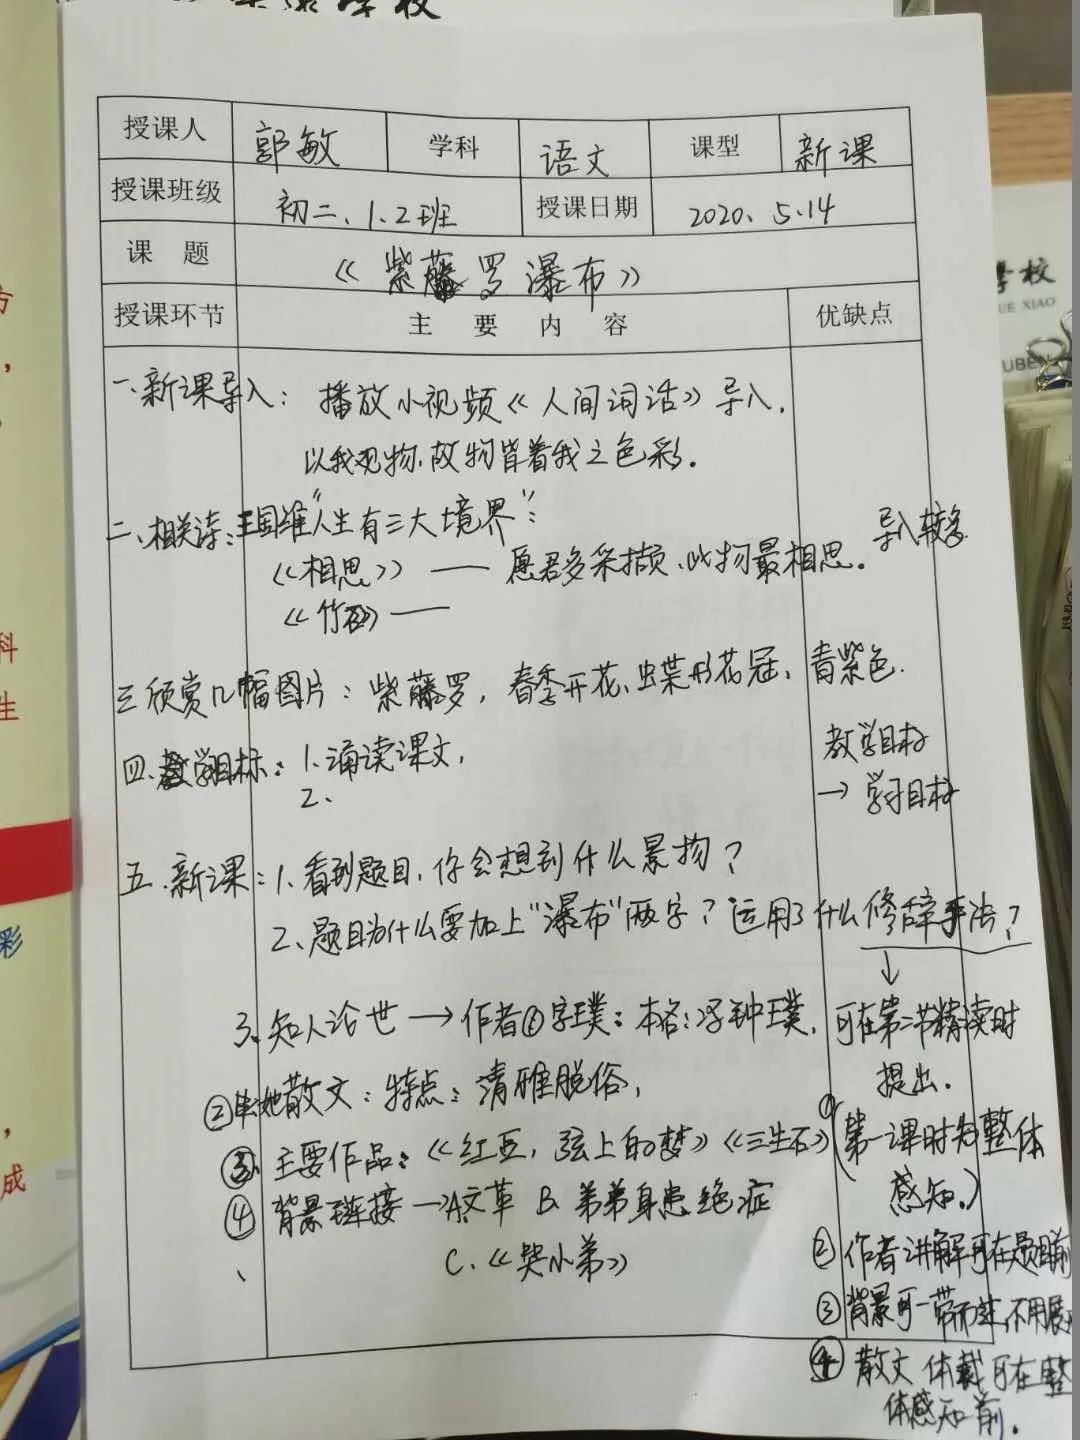 学校
授课人 郭敏 学科 语文 课型 新课
授课班级 初二、1.2班 授课日期 2020.5.14
课题 《紫藤罗瀑布》
授课环节 主要内容 优缺点
一、新课导入：播放小视频《人间词话》导入.
以我观物,故物皆着我之色彩.
二、相关诗：王国维"人生有三大境界"：
导入较多.
《相思》—— 愿君多采撷、此物最相思。
《竹石》——
三 欣赏几幅图片：紫藤罗，春季开花、蝶形花冠、青紫色.
四、教学目标：1.诵读课文,
2、
教学目标
→ 学习目标
五、新课：1.看到题目,你会想到什么景物？
2、题目为什么要加上"瀑布"两字？运用了什么修辞手法？
↓
可在第二节精读时
提出.
3、知人论世 → 作者① 字璞：本名：冯钟璞,
② 她散文：特点：清雅脱俗,
③ 主要作品：《红豆，弦上的梦》《三生石》
④ 背景链接 →A文革 B.弟弟身患绝症
C.《哭小弟》
①(第一课时为整体
感知.)
② 作者讲解可在题目前
③ 背景可一带而过,不用展
④ 散文体裁可在整
体感知前.
学校
UE XIAO
UBEN
方
科
生
彩
成